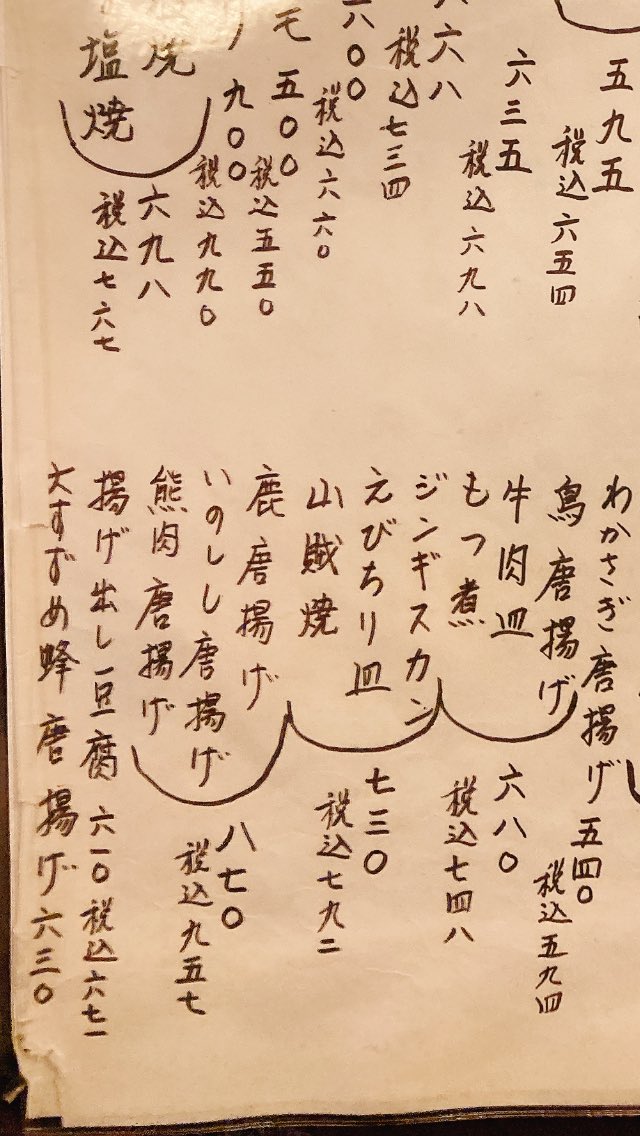 五九五
税込六五四
六三五
税込六九八
六八
税込七三四
六〇〇
税込六六〇
モ 五〇〇
税込五五〇
九〇〇
税込九九〇
焼
塩焼
六九八
税込七六七
わかさぎ唐揚げ 五四〇
税込五九四
鳥唐揚げ
牛肉皿
もつ煮
六八〇
税込七四八
ジンギスカン
えびちり皿
山賊焼
七三〇
税込七九二
鹿唐揚げ
いのしし唐揚げ
熊肉唐揚げ
八七〇
税込九五七
揚げ出し豆腐 六一〇 税込六七一
大すずめ蜂唐揚げ 六三〇